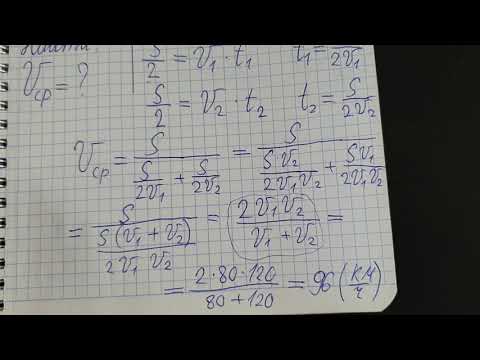 S/2 = V₁ · t₁   t₁ = S/2V₁
Vср = ?
S/2 = V₂ · t₂   t₂ = S/2V₂
Vср = S/(S/2V₁ + S/2V₂) = S/(SV₂/2V₁V₂ + SV₁/2V₁V₂)
= S/(S(V₁ + V₂)/2V₁V₂) = 2V₁V₂/(V₁ + V₂) =
= 2·80·120/(80+120) = 96 (км/ч)